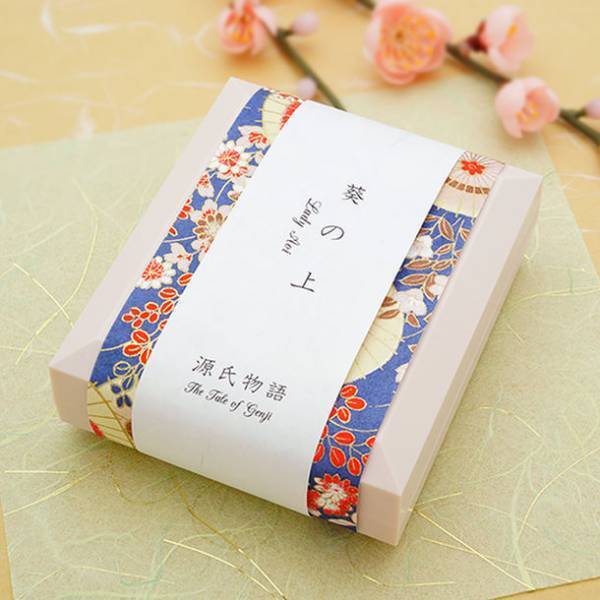 葵の上
Lady Aoi
源氏物語
The Tale of Genji